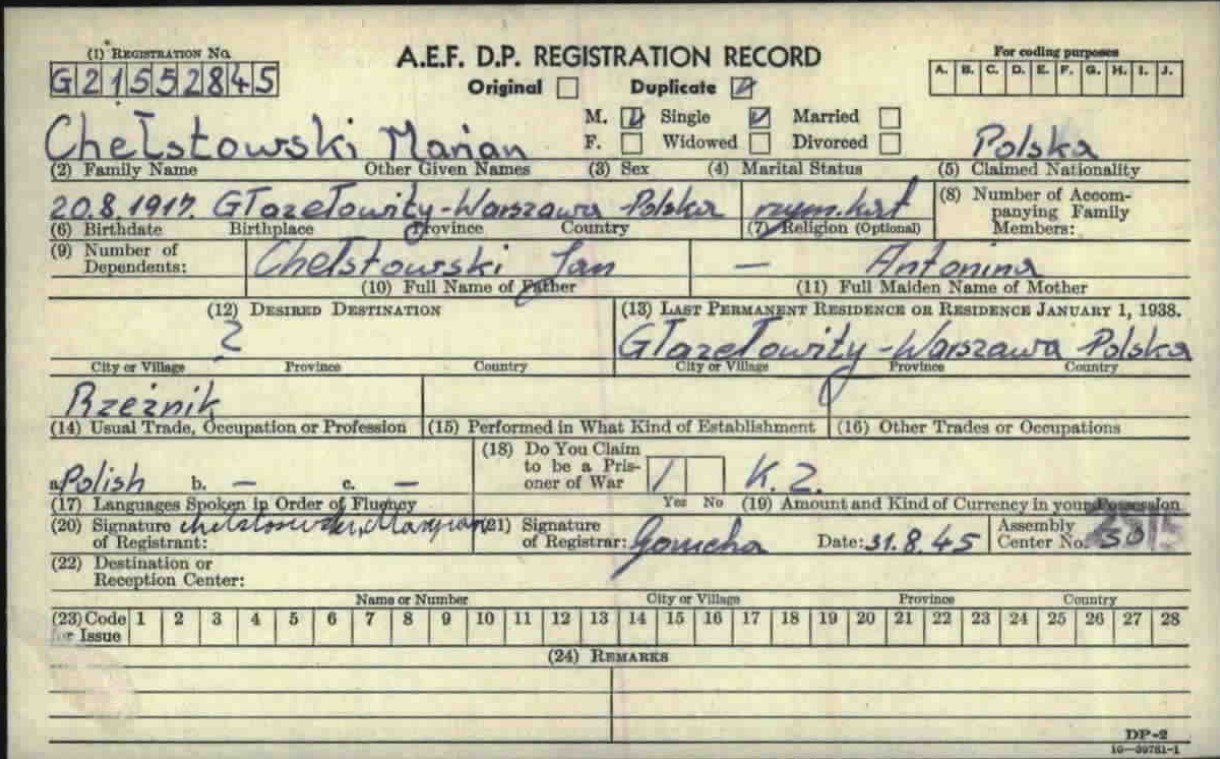 (1) REGISTRATION NO.
G21552845
A.E.F. D.P. REGISTRATION RECORD
Original Duplicate
For coding purposes
A. B. C. D. E. F. G. H. I. J.
Chełstowski Marian
M. Single Married
F. Widowed Divorced
Polska
(2) Family Name Other Given Names (3) Sex (4) Marital Status (5) Claimed Nationality
20.8.1917. Głazełowity-Warszawa Polska rzym.kat
(8) Number of Accompanying Family Members:
(6) Birthdate Birthplace Province Country (7) Religion (Optional)
(9) Number of Dependents:
Chełstowski Jan — Antonina
(10) Full Name of Father (11) Full Maiden Name of Mother
(12) DESIRED DESTINATION (13) LAST PERMANENT RESIDENCE OR RESIDENCE JANUARY 1, 1938.
? Głazełowity-Warszawa Polska
City or Village Province Country City or Village Province Country
Rzeźnik
(14) Usual Trade, Occupation or Profession (15) Performed in What Kind of Establishment (16) Other Trades or Occupations
a. Polish b. — c. —
(18) Do You Claim to be a Prisoner of War / K.Z.
(17) Languages Spoken in Order of Fluency Yes No (19) Amount and Kind of Currency in your Possession
(20) Signature of Registrant: Chełstowski, Maryian (21) Signature of Registrar: Date: 31.8.45 Assembly Center No.
(22) Destination or Reception Center:
Name or Number City or Village Province Country
(23) Code for Issue 1 2 3 4 5 6 7 8 9 10 11 12 13 14 15 16 17 18 19 20 21 22 23 24 25 26 27 28
(24) REMARKS
DP-2
16—39781-1